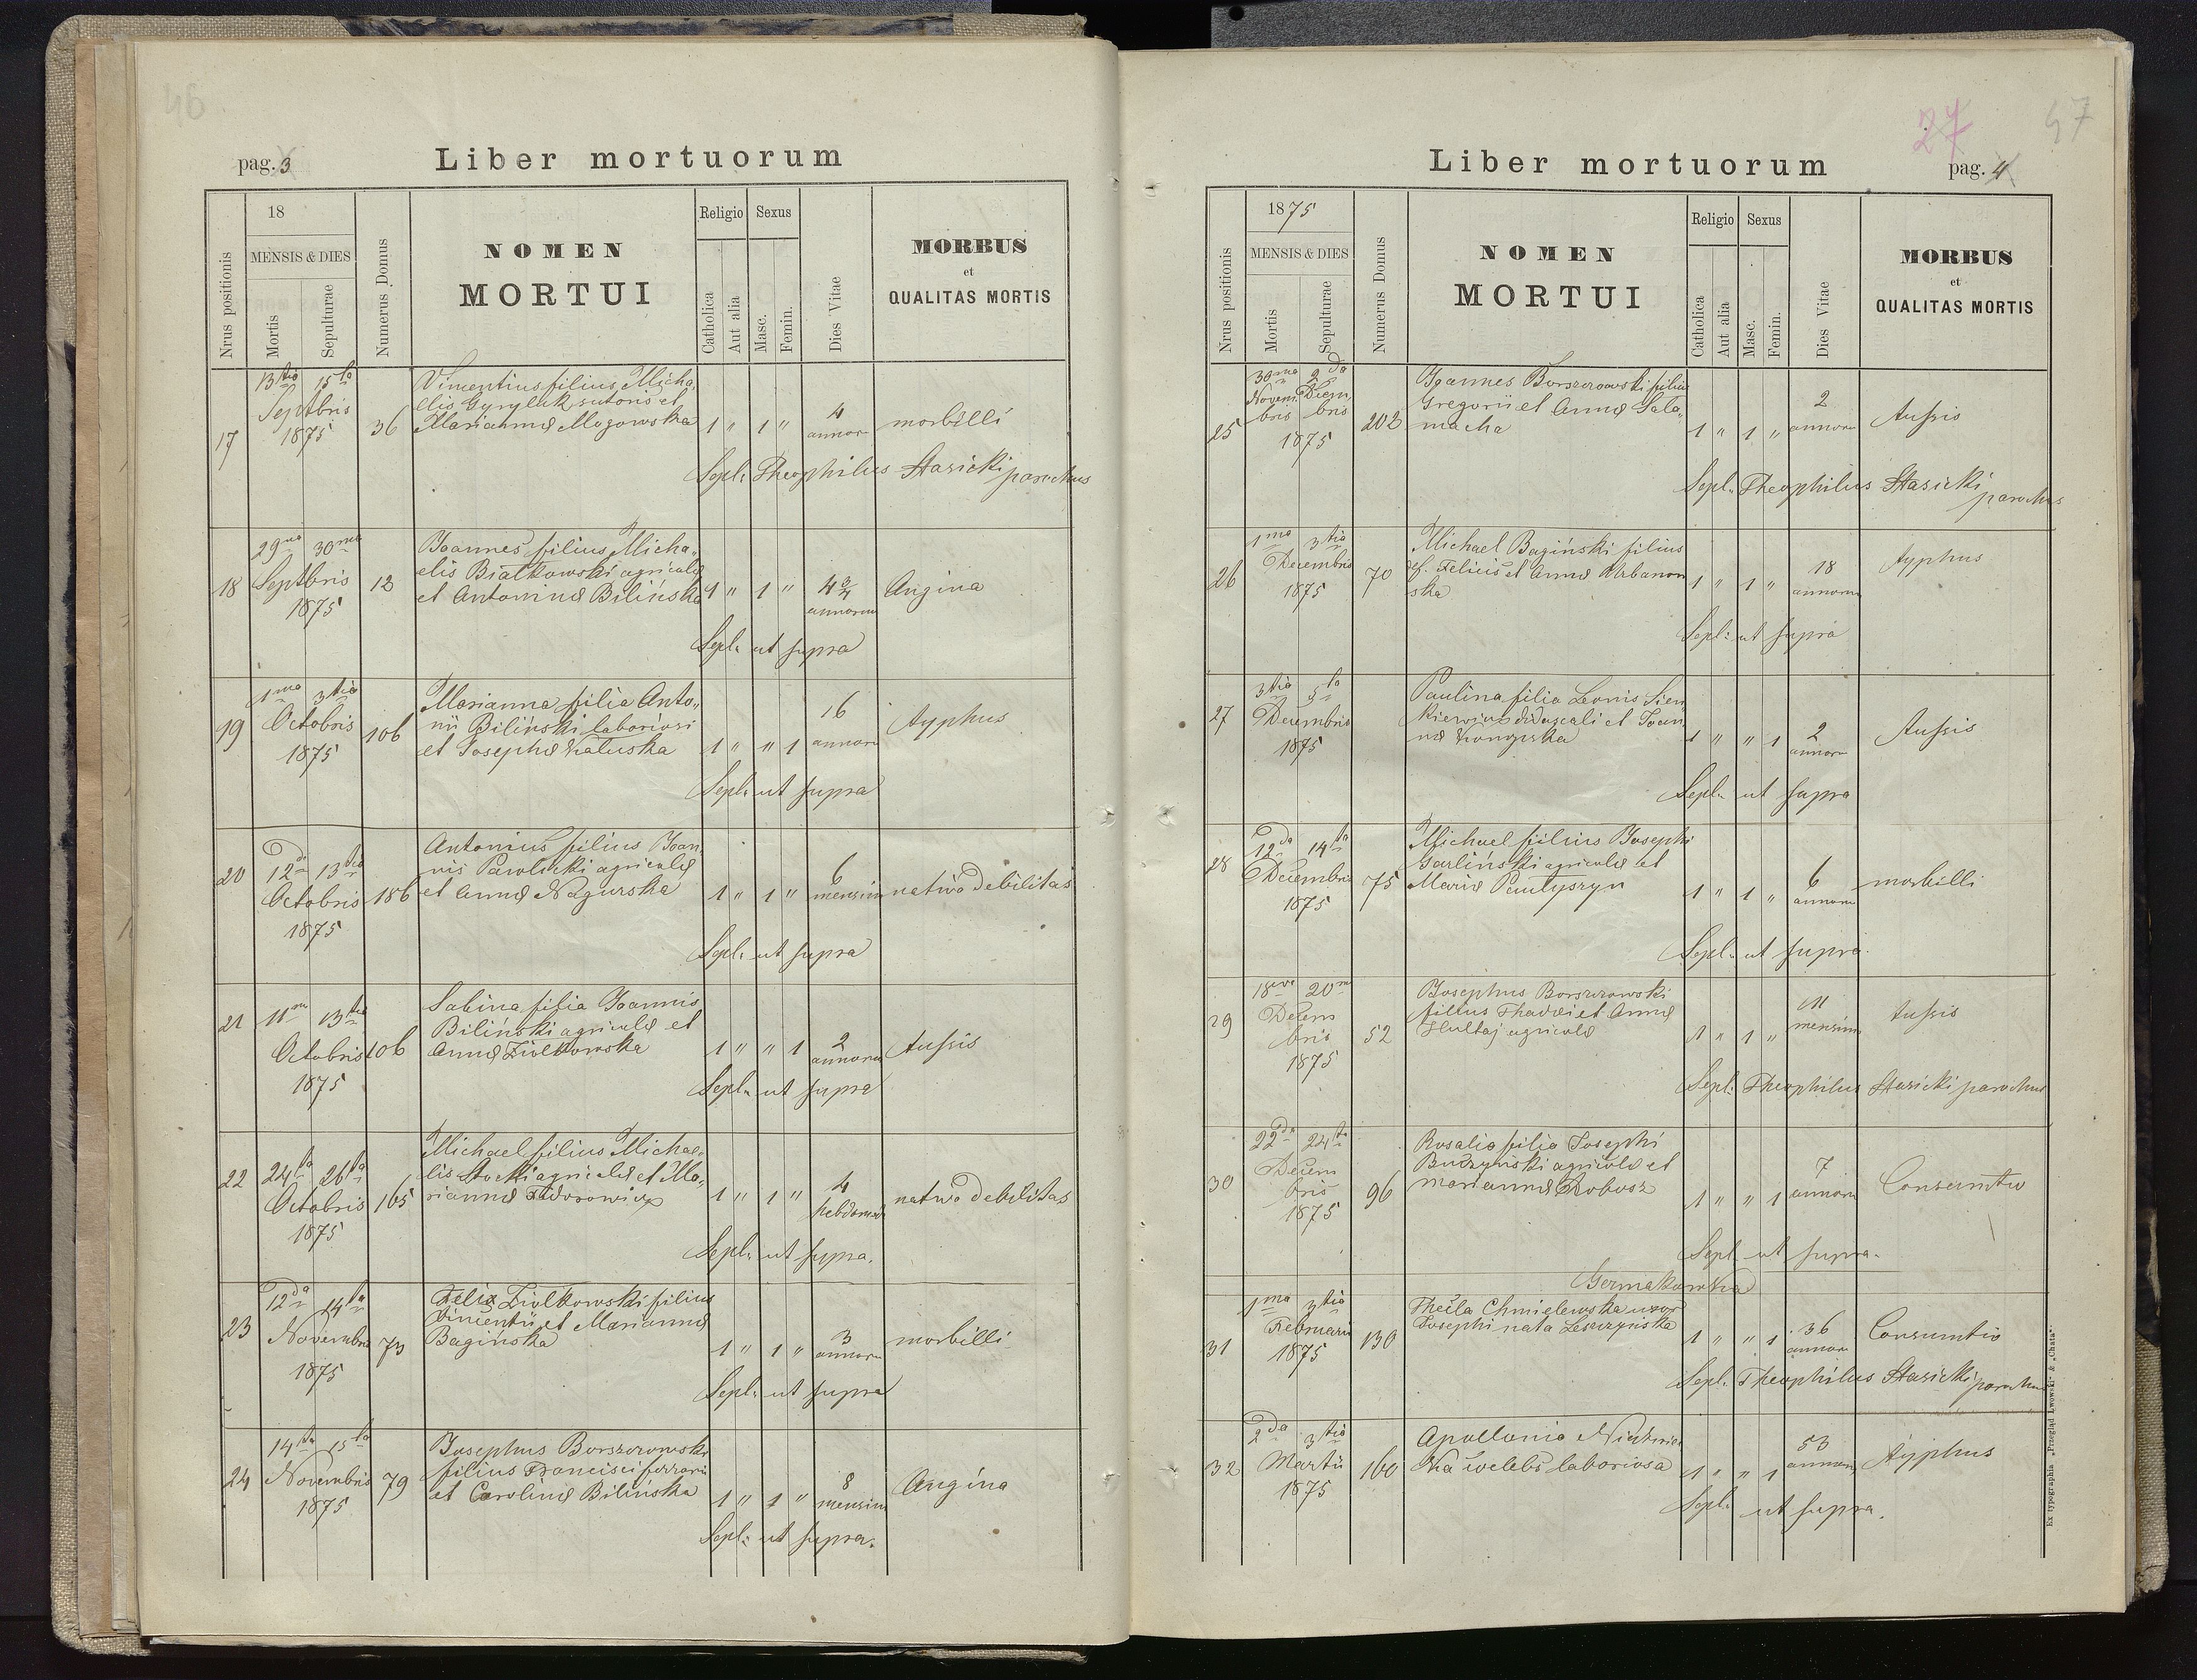 46
pag. 3
Liber mortuorum
Nrus positionis
18
MENSIS & DIES
Mortis
Sepulturae
Numerus Domus
NOMEN
MORTUI
Religio
Catholica
Aut alia
Sexus
Masc.
Femin.
Dies Vitae
MORBUS
et
QUALITAS MORTIS
17
13tia 15ta
Septbris
1875
36
Vincentius filius Micha„
elis Gyryluk sutoris et
Marianna Mogowska
1 " 1 "
4
annor
morbilli
Sepl: Theophilus Stasicki parochus
18
29na 30ma
Septbris
1875
12
Joannes filius Micha„
elis Białkowski agricola
et Antonina Bilińska
1 " 1 "
4 3/4
annorum
Angina
Sepl: ut supra
19
1ma 3tia
Octobris
1875
106
Marianna filia Anto„
nii Biliński laboriosi
et Josepha Kałuska
1 " " 1
16
annor
typhus
Sepl: ut supra
20
12da 13tia
Octobris
1875
186
Antonius filius Joan
nis Pawlicki agricola
et Anna Nagurska
1 " 1 "
6
mensium
nativa debilitas
Sepl: ut supra
21
11ma 13tia
Octobris
1875
106
Sabina filia Joannis
Biliński agricola et
Anna Ziołkowska
1 " " 1
2
annorum
tussis
Sepl: ut supra
22
24ta 26ta
Octobris
1875
165
Michael filius Michae„
lis Stocki agricola et Ma„
rianna Fedorowicz
1 " 1 "
4
hebdomad
nativa debilitas
Sepl: ut supra.
23
12da 14ta
Novembris
1875
73
Felix Ziolkowski filius
Vincentii et Marianna
Bagińska
1 " 1 "
3
annor
morbilli
Sepl: ut supra
24
14ta 15ta
Novembris
1875
79
Josephus Borszczowski
filius Francisci ferrarii
et Carolina Bilińska
1 " 1 "
8
mensium
Angina
Sepl: ut supra.
27
47
Liber mortuorum
pag. 4
Nrus positionis
1875
MENSIS & DIES
Mortis
Sepulturae
Numerus Domus
NOMEN
MORTUI
Religio
Catholica
Aut alia
Sexus
Masc.
Femin.
Dies Vitae
MORBUS
et
QUALITAS MORTIS
25
30ma 2da
Novem Decem
bris bris
1875
202
Joannes Borszczowski filius
Gregorii et Anna Sala„
macha
1 " 1 "
2
annor
tussis
Sepl: Theophilus Stasicki
parochus
26
1ma 3tia
Decembris
1875
70
Michael Bagiński filius
Felicis et Anna Urbanow
ska
1 " 1 "
18
annorum
typhus
Sepl: ut supra
27
3tia 5ta
Decembris
1875
Paulina filia Leonis Sien
kiewicz didascali et Joan
na
1 " " 1
2
annor
tussis
Sepl: ut supra
28
12da 14ta
Decembris
1875
75
Michael filius Josephi
Garliński agricola et
Maria
1 " 1 "
6
annor
morbilli
Sepl: ut supra.
29
18va 20ma
Decem
bris
1875
52
Josephus Borszczowski
filius Thadei et Anna
Hultaj agricola
1 " 1 "
11
mensium
tussis
Sepl: Theophilus Stasicki parochus
30
22da 24ta
Decem
bris
1875
96
Rosalia filia Josephi
Budzyński agricola et
marianna Robosz
1 " " 1
7
annor
Consumtio
Sepl ut supra.
Germakowka
31
1ma 3tia
Februarii
1875
130
Thecla Chmielewska uxor
Josephi nata Leszczyńska
1 " " 1
36
annor
Consumtio
Sepl: Theophilus Stasicki parochus
32
2da 3tia
Martii
1875
160
Apollonia
ka coelebs laboriosa
1 " " 1
53
annorum
typhus
Sepl: ut supra.
Ex typographia „Przegląd Lwowski" & „Chata".